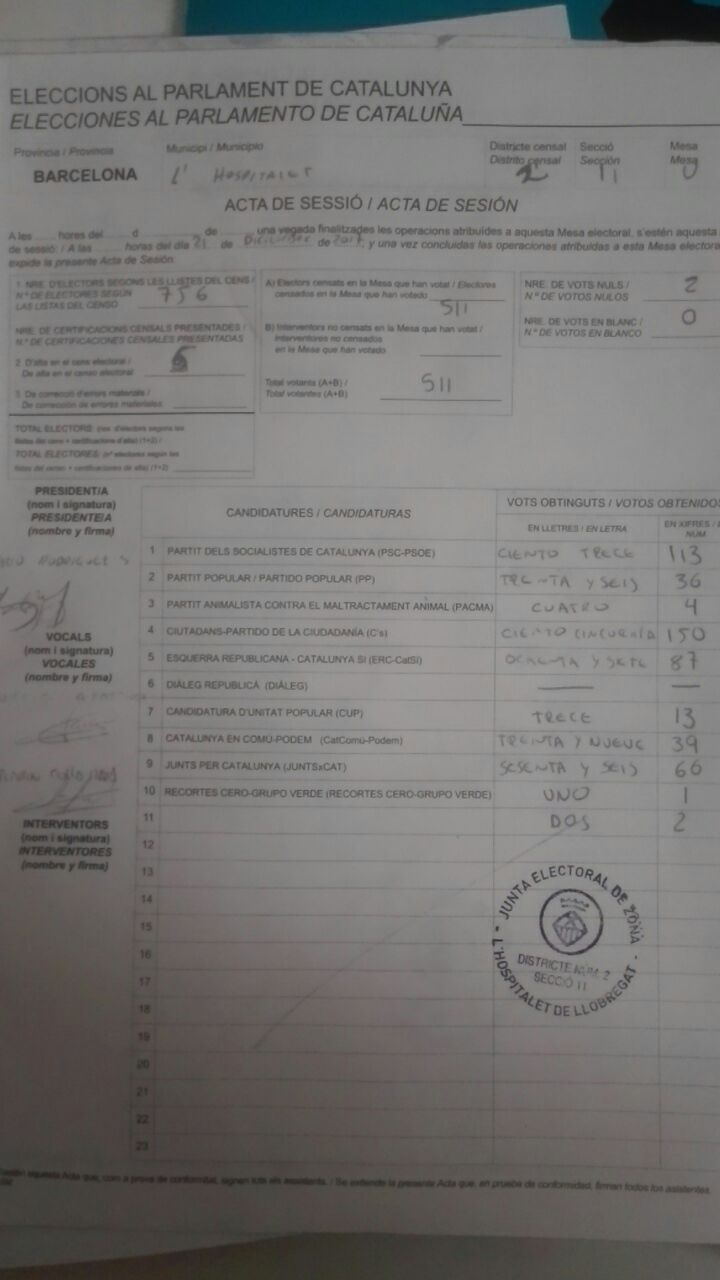 ELECCIONS AL PARLAMENT DE CATALUNYA
ELECCIONES AL PARLAMENTO DE CATALUÑA
Província / Provincia
Municipi / Municipio
Districte censal
Distrito censal
Secció
Sección
Mesa
Mesa
BARCELONA
L' HOSPITALET
2
11
U
ACTA DE SESSIÓ / ACTA DE SESIÓN
A les hores del d de una vegada finalitzades les operacions atribuïdes a aquesta Mesa electoral, s'estén aquesta
de sessió: / A las horas del día 21 de Diciembre de 2017, y una vez concluidas las operaciones atribuidas a esta Mesa electora
expide la presente Acta de Sesión:
1. NRE. D'ELECTORS SEGONS LES LLISTES DEL CENS /
N.º DE ELECTORES SEGÚN
LAS LISTAS DEL CENSO
756
NRE. DE CERTIFICACIONS CENSALS PRESENTADES /
N.º DE CERTIFICACIONES CENSALES PRESENTADAS
2. D'alta en el cens electoral /
De alta en el censo electoral
3. De correcció d'errors materials /
De corrección de errores materiales
TOTAL ELECTORS: (nre. d'electors segons les
llistes del cens + certificacions d'alta) (1+2) /
TOTAL ELECTORES: (nº electores según las
listas del censo + certificaciones de alta) (1+2)
A) Electors censats en la Mesa que han votat / Electores
censados en la Mesa que han votado
511
B) Interventors no censats en la Mesa que han votat /
Interventores no censados
en la Mesa que han votado
Total votants (A+B) /
Total votantes (A+B)
511
NRE. DE VOTS NULS /
N.º DE VOTOS NULOS
2
NRE. DE VOTS EN BLANC /
N.º DE VOTOS EN BLANCO
0
PRESIDENT/A
(nom i signatura)
PRESIDENTE/A
(nombre y firma)
VOCALS
(nom i signatura)
VOCALES
(nombre y firma)
INTERVENTORS
(nom i signatura)
INTERVENTORES
(nombre y firma)
CANDIDATURES / CANDIDATURAS
VOTS OBTINGUTS / VOTOS OBTENIDOS
EN LLETRES / EN LETRA
EN XIFRES /
NÚM
1 PARTIT DELS SOCIALISTES DE CATALUNYA (PSC-PSOE) CIENTO TRECE 113
2 PARTIT POPULAR / PARTIDO POPULAR (PP) TREINTA Y SEIS 36
3 PARTIT ANIMALISTA CONTRA EL MALTRACTAMENT ANIMAL (PACMA) CUATRO 4
4 CIUTADANS-PARTIDO DE LA CIUDADANÍA (C's) CIENTO CINCUENTA 150
5 ESQUERRA REPUBLICANA - CATALUNYA SÍ (ERC-CatSí) OCHENTA Y SIETE 87
6 DIÀLEG REPUBLICÀ (DIÀLEG) — —
7 CANDIDATURA D'UNITAT POPULAR (CUP) TRECE 13
8 CATALUNYA EN COMÚ-PODEM (CatComú-Podem) TREINTA Y NUEVE 39
9 JUNTS PER CATALUNYA (JUNTSxCAT) SESENTA Y SEIS 66
10 RECORTES CERO-GRUPO VERDE (RECORTES CERO-GRUPO VERDE) UNO 1
11 DOS 2
12
13
14
15
16
17
18
19
20
21
22
23
JUNTA ELECTORAL DE ZONA
L'HOSPITALET DE LLOBREGAT
DISTRICTE NÚM. 2
SECCIÓ 11
aquesta Acta que, com a prova de conformitat, signen tots els assistents. / Se extiende la presente Acta que, en prueba de conformidad, firman todos los asistentes.